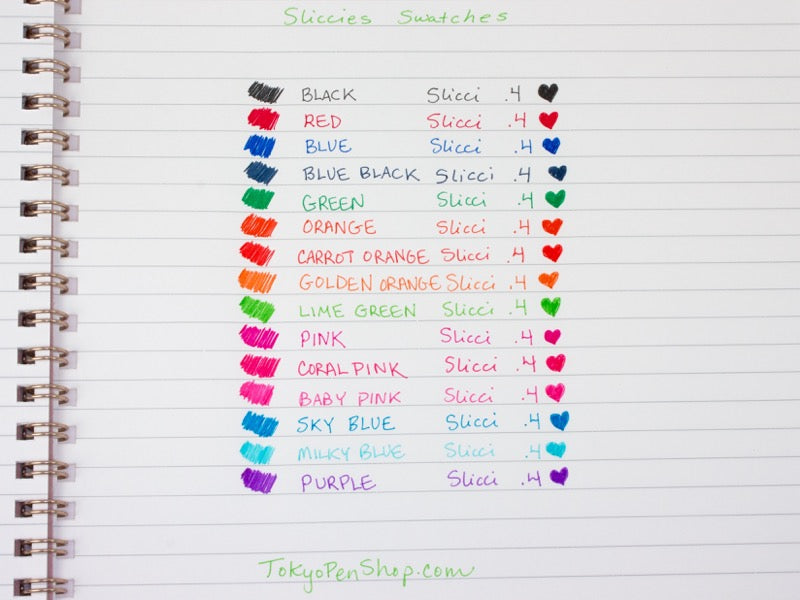 Sliccies Swatches
BLACK Slicci .4
RED Slicci .4
BLUE Slicci .4
BLUE BLACK Slicci .4
GREEN Slicci .4
ORANGE Slicci .4
CARROT ORANGE Slicci .4
GOLDEN ORANGE Slicci .4
LIME GREEN Slicci .4
PINK Slicci .4
CORAL PINK Slicci .4
BABY PINK Slicci .4
SKY BLUE Slicci .4
MILKY BLUE Slicci .4
PURPLE Slicci .4
TokyoPenShop.com